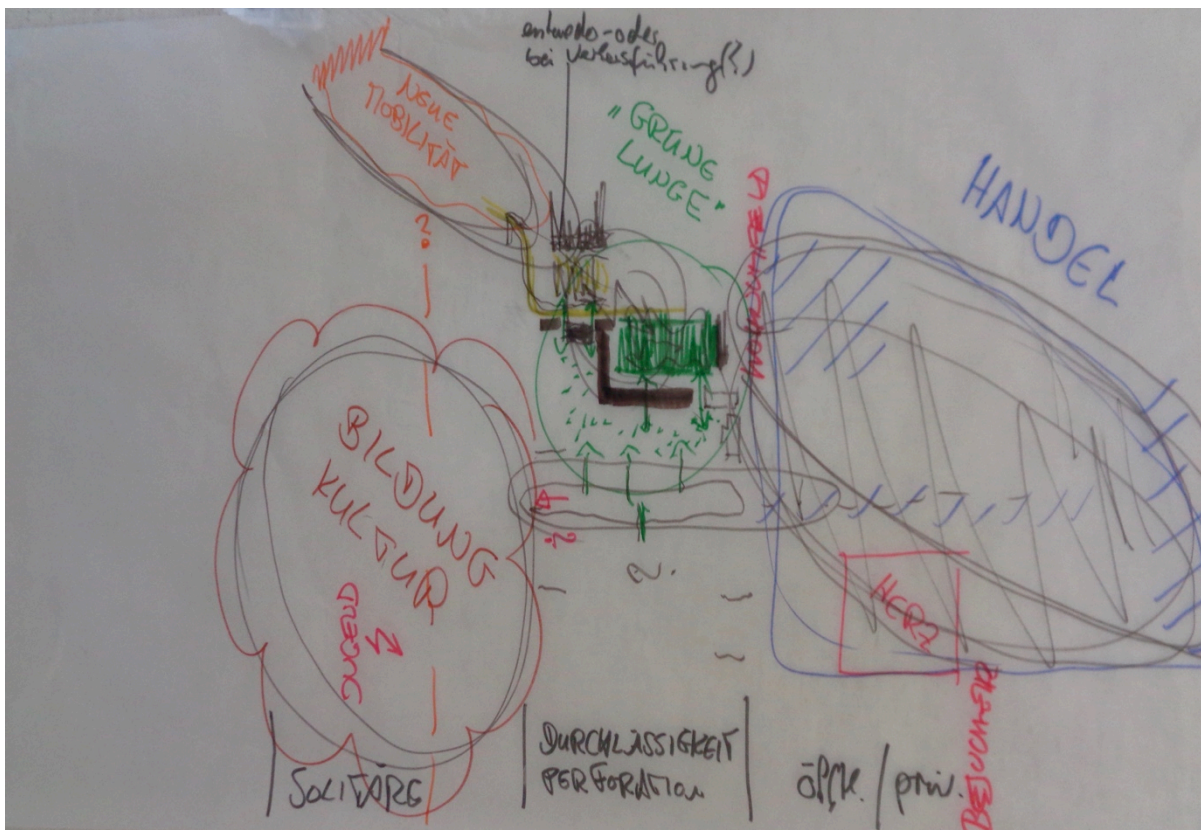 entweder-oder
bei Verkehrsführung(?)
NEUE
MOBILITÄT
"GRÜNE
LUNGE"
HANDEL
?
BILDUNG
KULTUR
JUGEND
?
2.
HERZ
BESUCHER
SOLITÄRE
DURCHLÄSSIGKEIT
PERFORATION
öfftl. / priv.